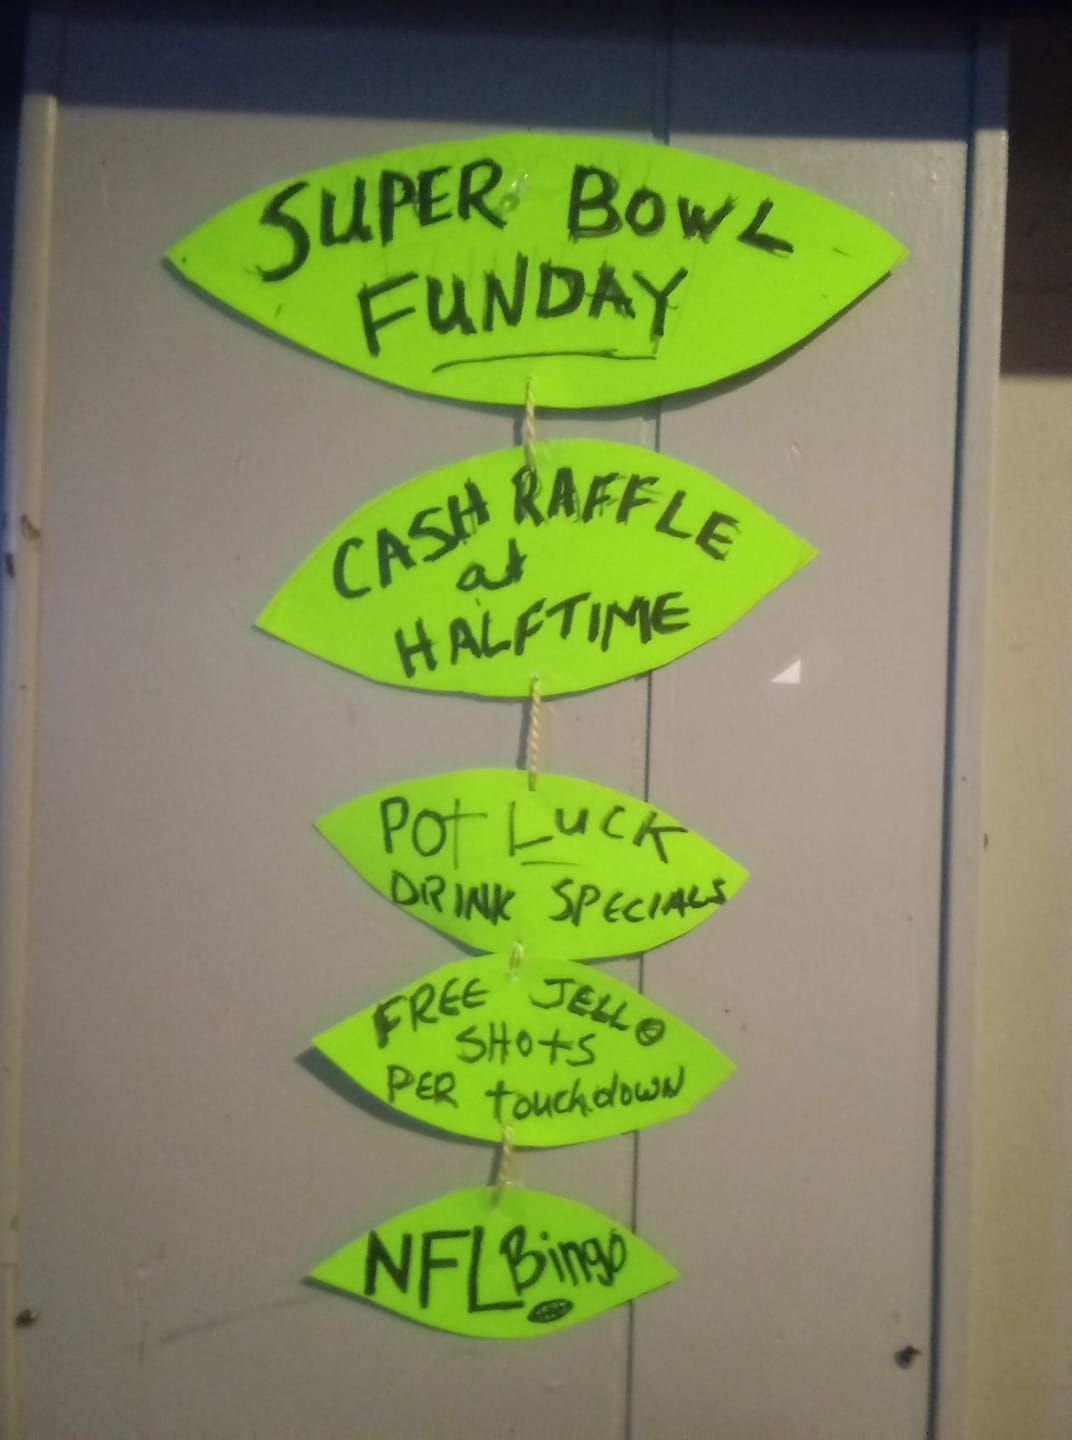 SUPER BOWL
FUNDAY
CASH RAFFLE
at
HALFTIME
POt LUCK
DRINK SPECIALS
FREE JELLO
SHOtS
PER touchdowN
NFL Bingo